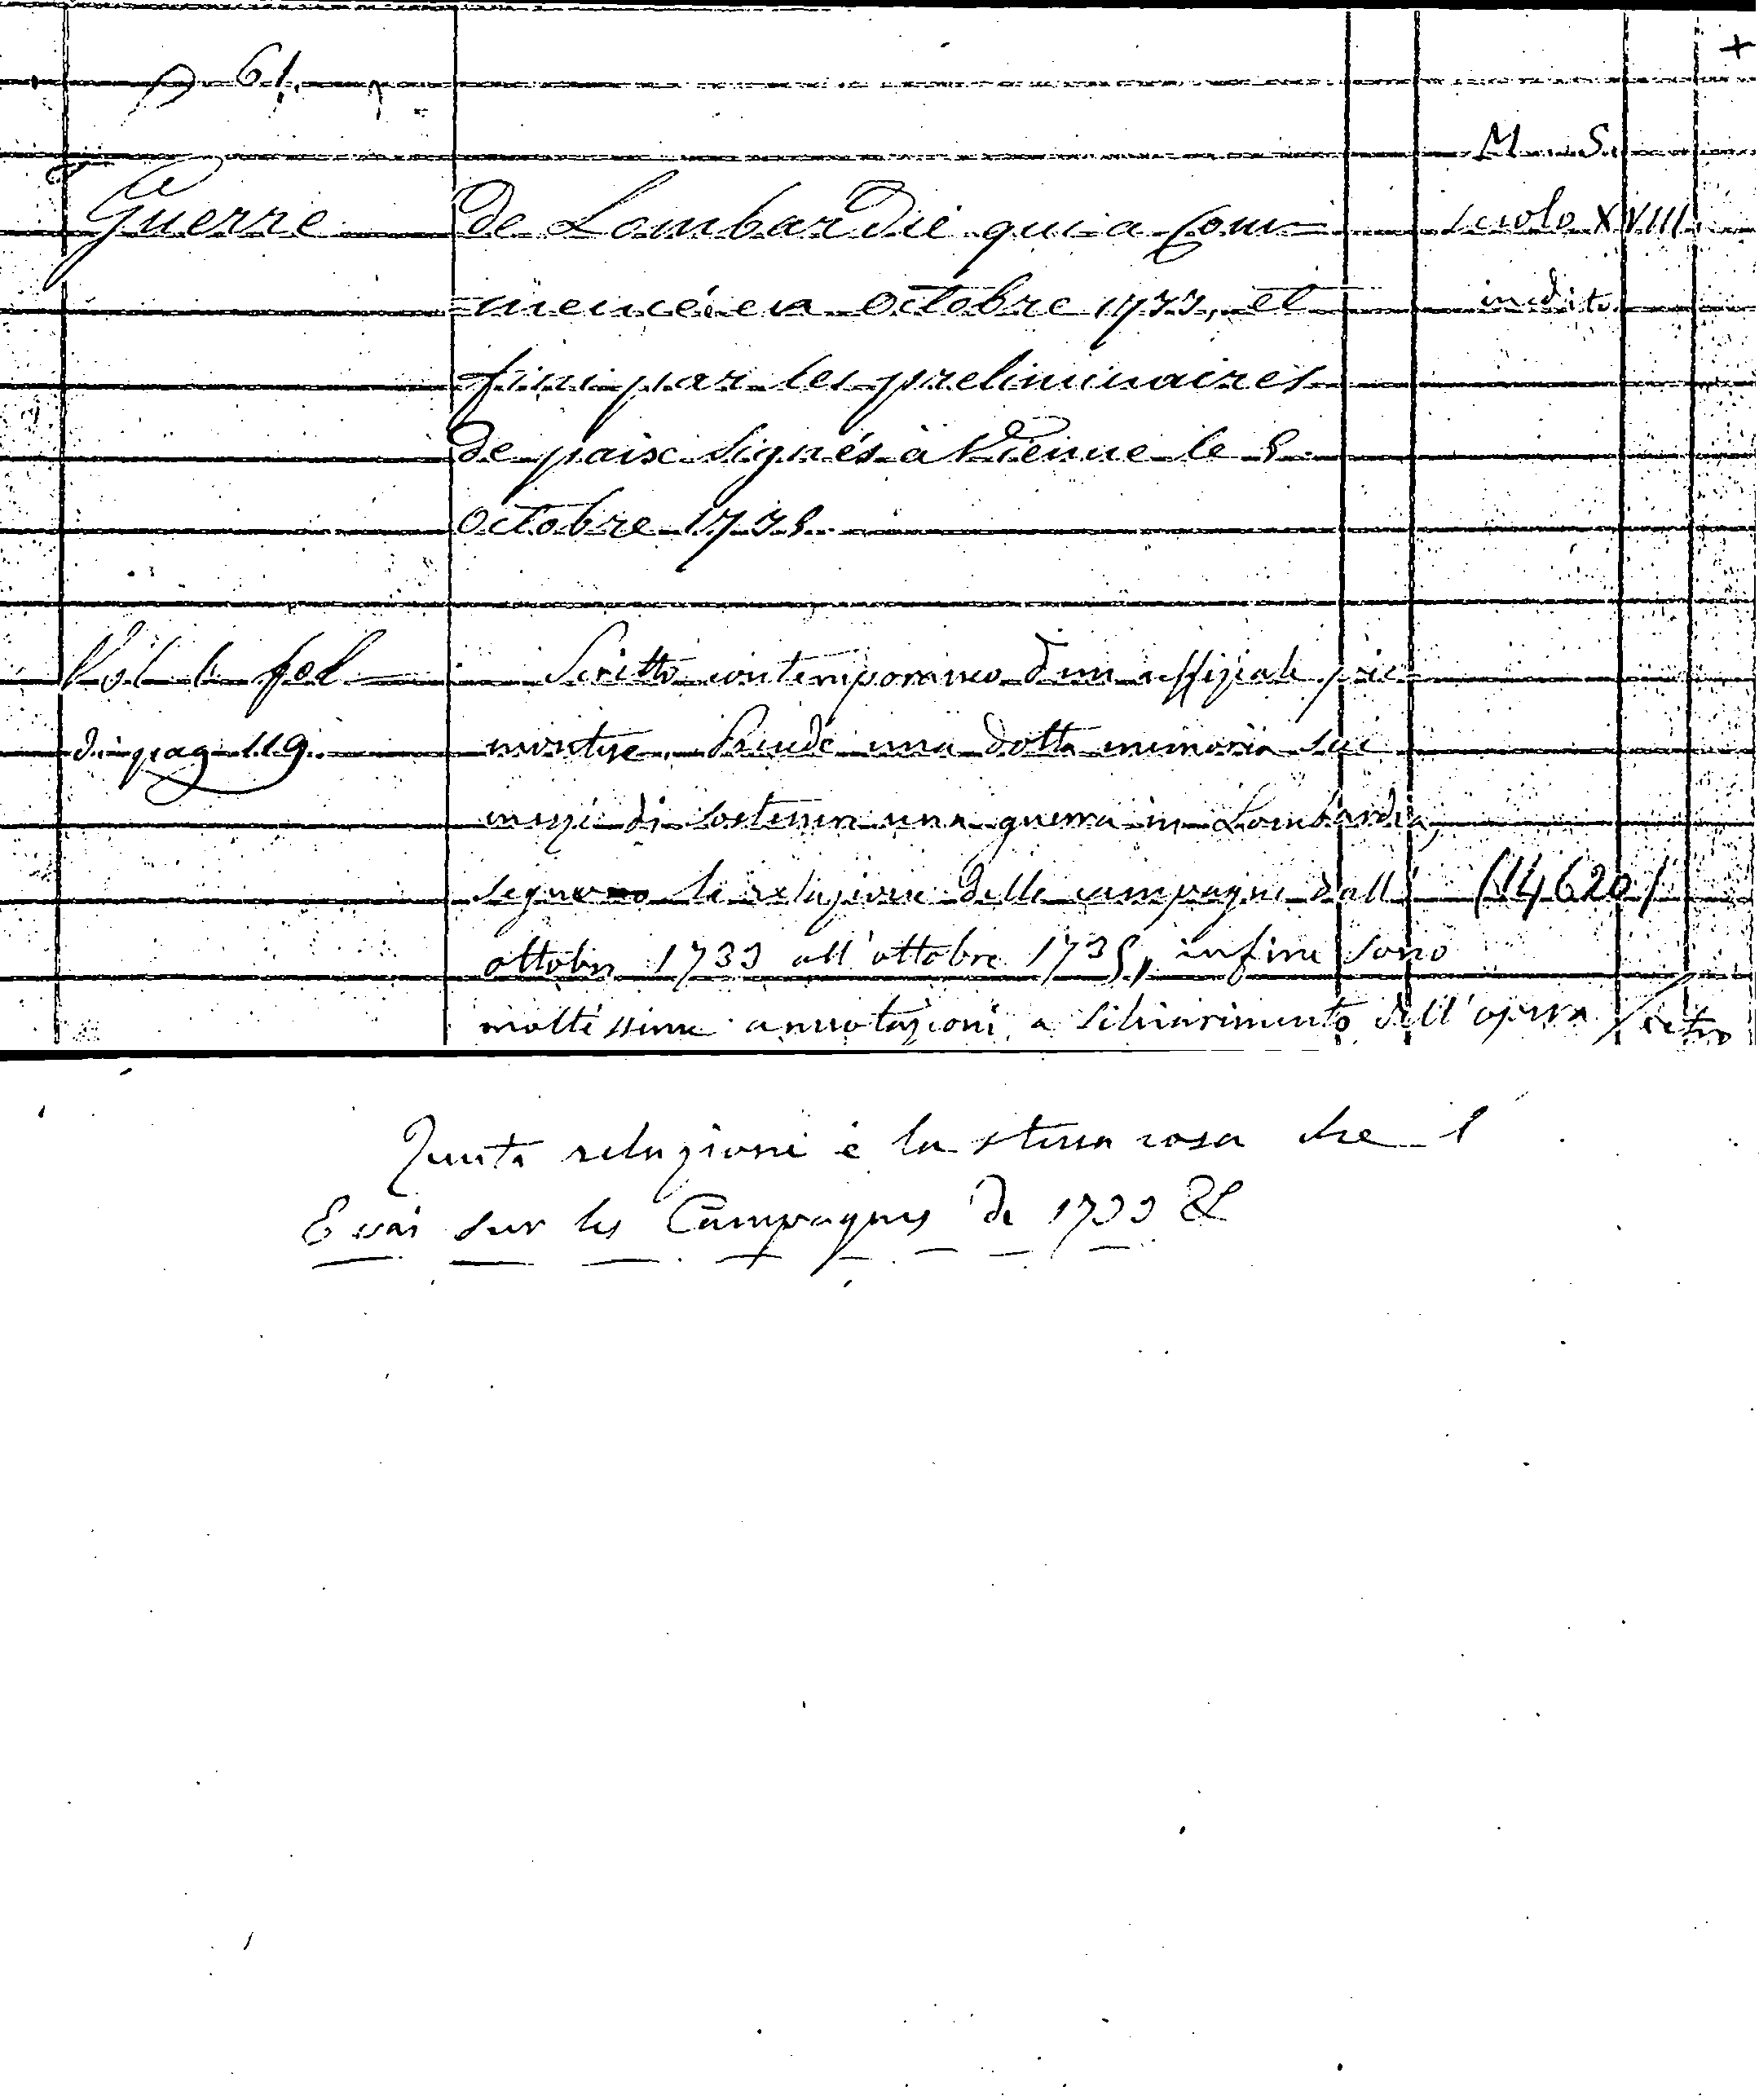 p 61.
M. S.
Guerre de Lombardie qui a Com= secolo XVIII
=mencé en Octobre 1733, et inedito
fini par les preliminaires
de paix signés à Vienne le 5.
Octobre 1735.
Vol. 1. fol Scritto contemporaneo d'un uffiziale pie
di pag 119. montese. Precede una dotta memoria sui
mezzi di sostenere una guerra in Lombardia,
segue la relazione delle campagne dall' (14620)
ottobre 1733 all'ottobre 1735, infine sono
moltissime annotazioni a schiarimento dell'opera /retro
Questa relazione è la stessa cosa che l'
Essai sur les Campagnes de 1733 &